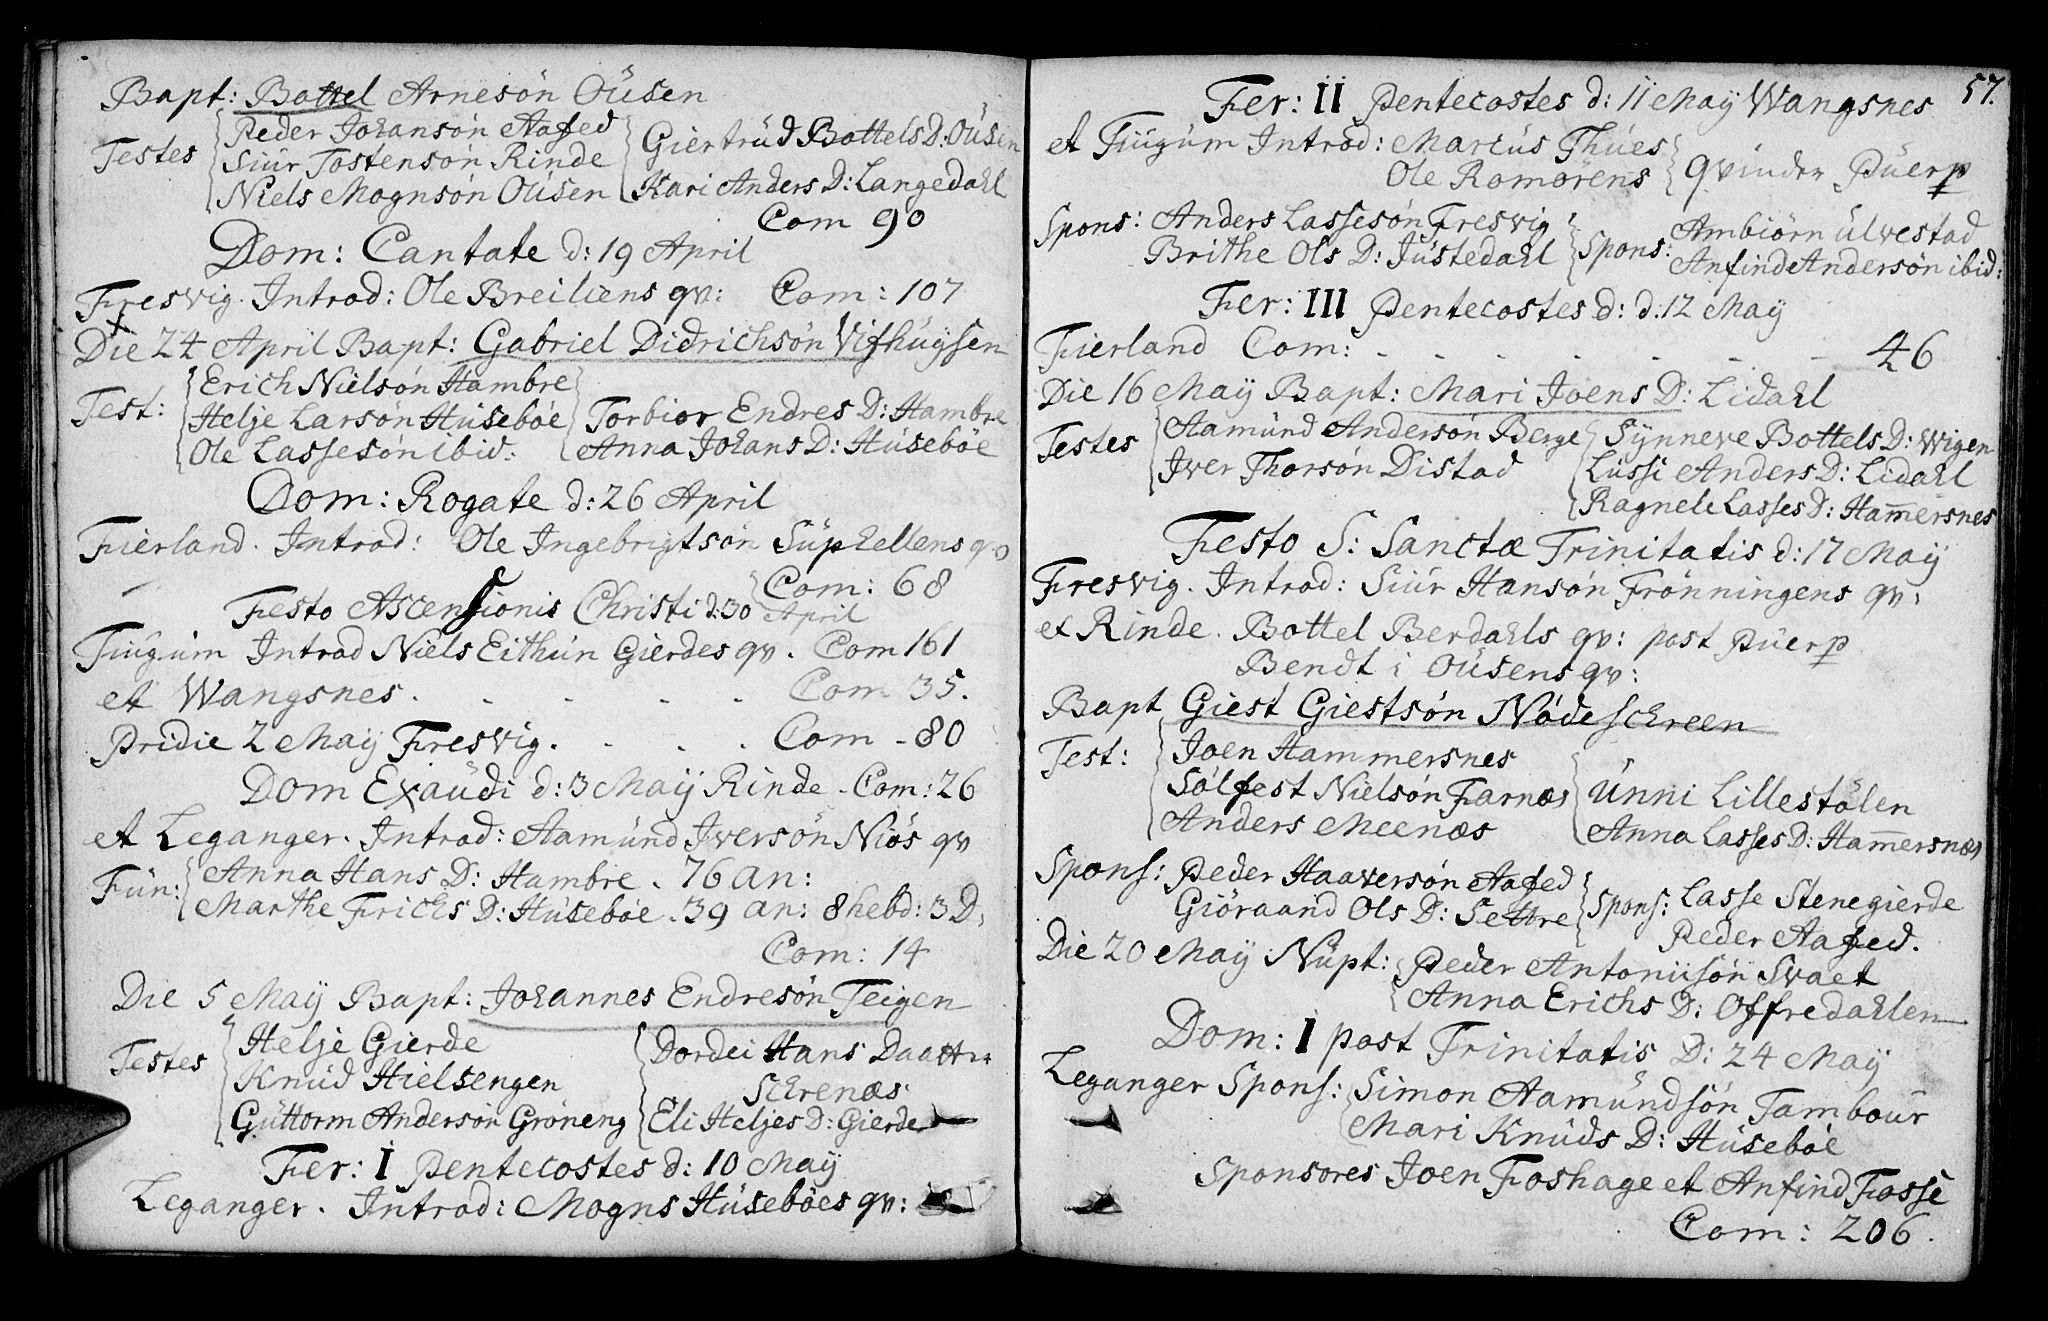 Bapt: Bottel Arnesön Oüsen
Testes Peder Johansön Aafed
Siür Tostensön Rinde
Niels Mognsön Oüsen
Giertrüd Bottels D: Oüsen
Kari Anders D: Langedahl
Com 90
Dom: Cantate d: 19 April
Fresvig. Introd: Ole Breiliens qv: Com: 107
Die 24 April Bapt: Gabriel Didrichsön Vifhüÿsen
Test: Erich Nielsön Hambre
Helje Larsön Hüseböe
Ole Lassesön ibid:
Torbior Endres D: Hambre
Anna Johans D: Hüseböe
Dom: Rogate d: 26 April
Fierland. Introd: Ole Ingebrigtsön Süphellens qv
Com: 68
Festo Ascensionis Christi d: 30 April
Tiügüm Introd Niels Eithün Gierdes qv. Com 161
et Wangsnes. . . . . . Com 35.
Pridie 2 Maÿ Fresvig. . . . Com - 80
Dom Exaüdi d: 3 Maÿ Rinde - Com: 26
et Leganger. Introd: Aamünd Iversön Niös qv
Fün: Anna Hans D: Hambre. 76 an:
Marthe Frichs D: Hüseböe. 39 an: 8 hebd: 3 D:
Com: 14
Die 5 Maÿ Bapt: Johannes Endresön Teigen
Testes Helje Gierde
Knüd Hielsengen
Güttorm Andersön Gröneng
Dordei Hans Daatter
Schrenæs
Eli Heljes D: Gierde
Fer: I Pentecostes d: 10 Maÿ
Leganger. Introd: Mogns Hüseböes qv:
57.
Fer: II Pentecostes d: 11 Maÿ Wangsnes
et Tiügüm Introd: Marcüs Thües
Ole Romörens
qvinder Püerp
Spons: Anders Lassesön Fresvig
Brithe Ols D: Jüstedahl
Spons: Ambiörn Ulvestad
Anfind Andersön ibid:
Fer: III Pentecostes d: d: 12 Maÿ
Fierland Com: - - - - - - - 46
Die 16 Maÿ Bapt: Mari Joens D: Lidahl
Testes Aamünd Andersön Berge
Iver Thorsön Distad
Sÿnneve Bottels D: Wigen
Lüssi Anders D: Lidahl
Ragnele Lasses D: Ham̄ersnes
Festo S: Sanctæ Trinitatis d: 17 Maÿ
Fresvig. Introd: Siür Hansön Frönningens qv:
et Rinde. Bottel Berdahls qv: post püerp
Bendt i Oüsens qv:
Bapt Giest Giestsön Nödeschreen
Test: Joen Hammersnes
Sölfest Nielsön Farnæs
Anders Meenæs
Ünni Lillestölen
Anna Lasses D: Ham̄ersnæs
Spons: Peder Haaversön Aafed
Giöraand Ols D: Settre
Spons: Lasse Stenegierde
Peder Aafed.
Die 20 Maÿ Nüpt: Peder Antoniisön Svaet
Anna Erichs D: Offredahlen
Dom: I post Trinitatis D: 24 Maÿ
Leganger Spons: Simon Aamündsön Tamboür
Mari Knüds D: Hüseböe
Sponsores Joen Foshage et Anfind Fosse
Com: 206.